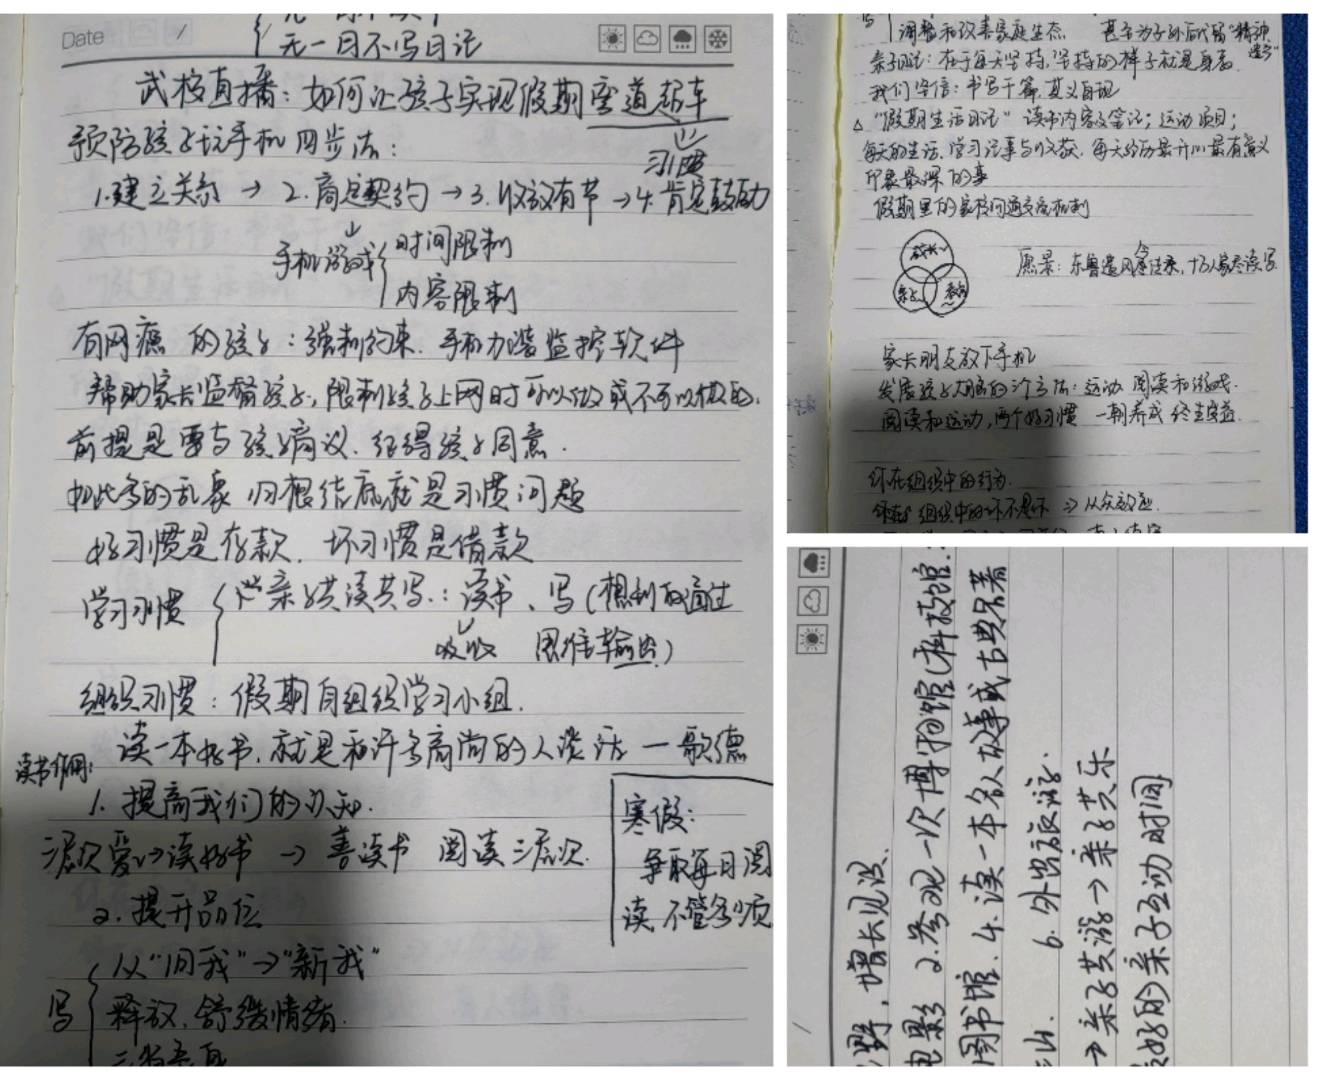 Date
无一日不写日记
武校直播：如何让孩子实现假期弯道超车
习惯
预防孩子玩手机四步法：
1.建立关系 → 2.商定契约 → 3.收放有节 → 4.肯定鼓励
手机游戏 时间限制
内容限制
有网瘾的孩子：强制约束.手机加装监控软件
帮助家长监督孩子,限制孩子上网时可以做或不可以做的.
前提是要与孩子商议.征得孩子同意.
如此多的乱象 归根结底就是习惯问题
好习惯是存款.坏习惯是借款
学习习惯 亲子共读共写：读书、写(想到的通过
吸收 思维输出)
组织习惯：假期自组织学习小组.
读一本好书,就是和许多高尚的人谈话 — 歌德
读书作用:
1.提高我们的认知.
三层次 爱读好书 → 善读书 阅读三层次.
2.提升品位
寒假:
争取每日阅
读,不管多少页
写 从"旧我"→"新我"
释放,舒缓情绪.
调整和改善家庭生态 甚至为子孙后代留"精神
遗产"
亲子日记:在于每天坚持,坚持的样子就是身教
我们坚信:书写千篇,其义自现
"假期生活日记" 读书内容及笔记;运动项目;
每天的生活、学习记事与收获.每天经历最开心最有意义
印象最深的事
假期里的家校沟通交流机制
成长
亲子
教育
愿景:东鲁遗风今传承,十万人家尽读写.
家长朋友放下手机
发展孩子大脑的三个方法:运动 阅读和游戏.
阅读和运动,两个好习惯 一朝养成 终生受益.
坏在组织中的行为.
组织中的坏不是坏 → 从众效应
野,增长见识.
电影 2.参观一次博物馆(科技馆.
图书馆. 4.读一本名人故事或古典名著
6.外出旅游.
→ 亲子共游 → 亲子共乐
好的亲子互动时间